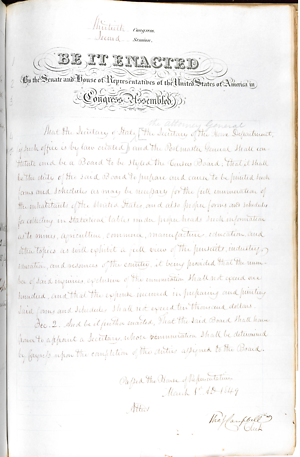 Thirtieth Congress,
Second Session.
BE IT ENACTED
By the Senate and House of Representatives of the United States of America in
Congress Assembled,
the Attorney General
That the Secretary of State, the Secretary of the new Department,
if such office is by law created, and the Postmaster General, shall con-
stitute and be a Board to be styled the Census Board; that it shall
be the duty of the said Board to prepare and cause to be printed such
forms and schedules as may be necessary for the full enumeration of
the inhabitants of the United States; and also proper forms and schedules
for collecting in statistical tables under proper heads such information
as to mines, agriculture, commerce, manufactures, education and
other topics as will exhibit a full view of the pursuits, industry, e-
ducation, and resources of the country, it being provided that the number
of said inquiries exclusive of the enumeration shall not exceed one
hundred, and that the expense incurred in preparing and printing
said forms and schedules shall not exceed ten thousand dollars.
Sec. 2. And be it further enacted, That the said Board shall have
power to appoint a Secretary, whose remuneration shall be determined
by Congress upon the completion of the duties assigned to the Board.
Passed the House of Representatives
March 1st 1849
Attest
Tho. J. Campbell
Clerk